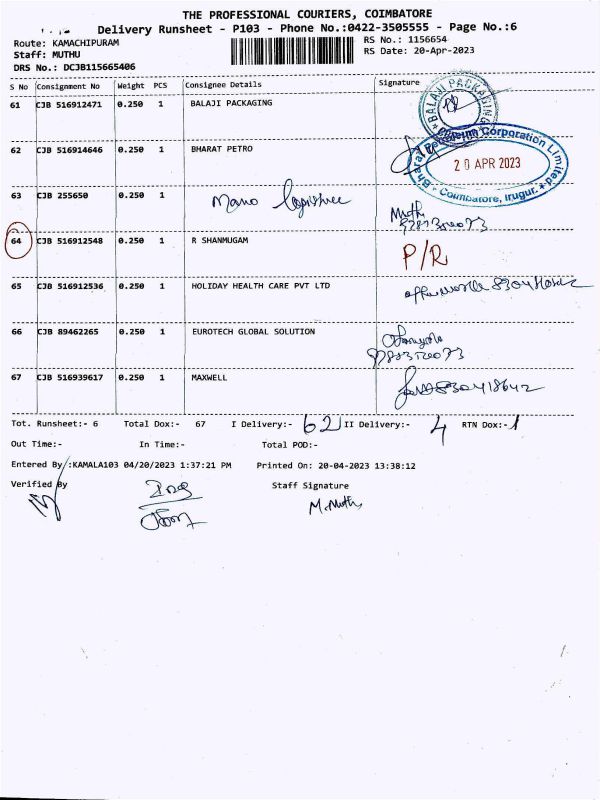 THE PROFESSIONAL COURIERS, COIMBATORE
Delivery Runsheet - P103 - Phone No.:0422-3505555 - Page No.:6
Route: KAMACHIPURAM RS No.: 1156654
Staff: MUTHU RS Date: 20-Apr-2023
DRS No.: DCJB115665406
S No Consignment No Weight PCS Consignee Details Signature
61 CJB 516912471 0.250 1 BALAJI PACKAGING
BALAJI PACKAGING
62 CJB 516914646 0.250 1 BHARAT PETRO
Bharat Petroleum Corporation Limited
20 APR 2023
Coimbatore, Irugur.
63 CJB 255650 0.250 1 Mano
Muthu
64 CJB 516912548 0.250 1 R SHANMUGAM P/R
65 CJB 516912536 0.250 1 HOLIDAY HEALTH CARE PVT LTD
66 CJB 89462265 0.250 1 EUROTECH GLOBAL SOLUTION
67 CJB 516939617 0.250 1 MAXWELL
Tot. Runsheet:- 6 Total Dox:- 67 I Delivery:- 62 II Delivery:- 4 RTN Dox:- 1
Out Time:- In Time:- Total POD:-
Entered By :KAMALA103 04/20/2023 1:37:21 PM Printed On: 20-04-2023 13:38:12
Verified By Staff Signature
M. Muthu